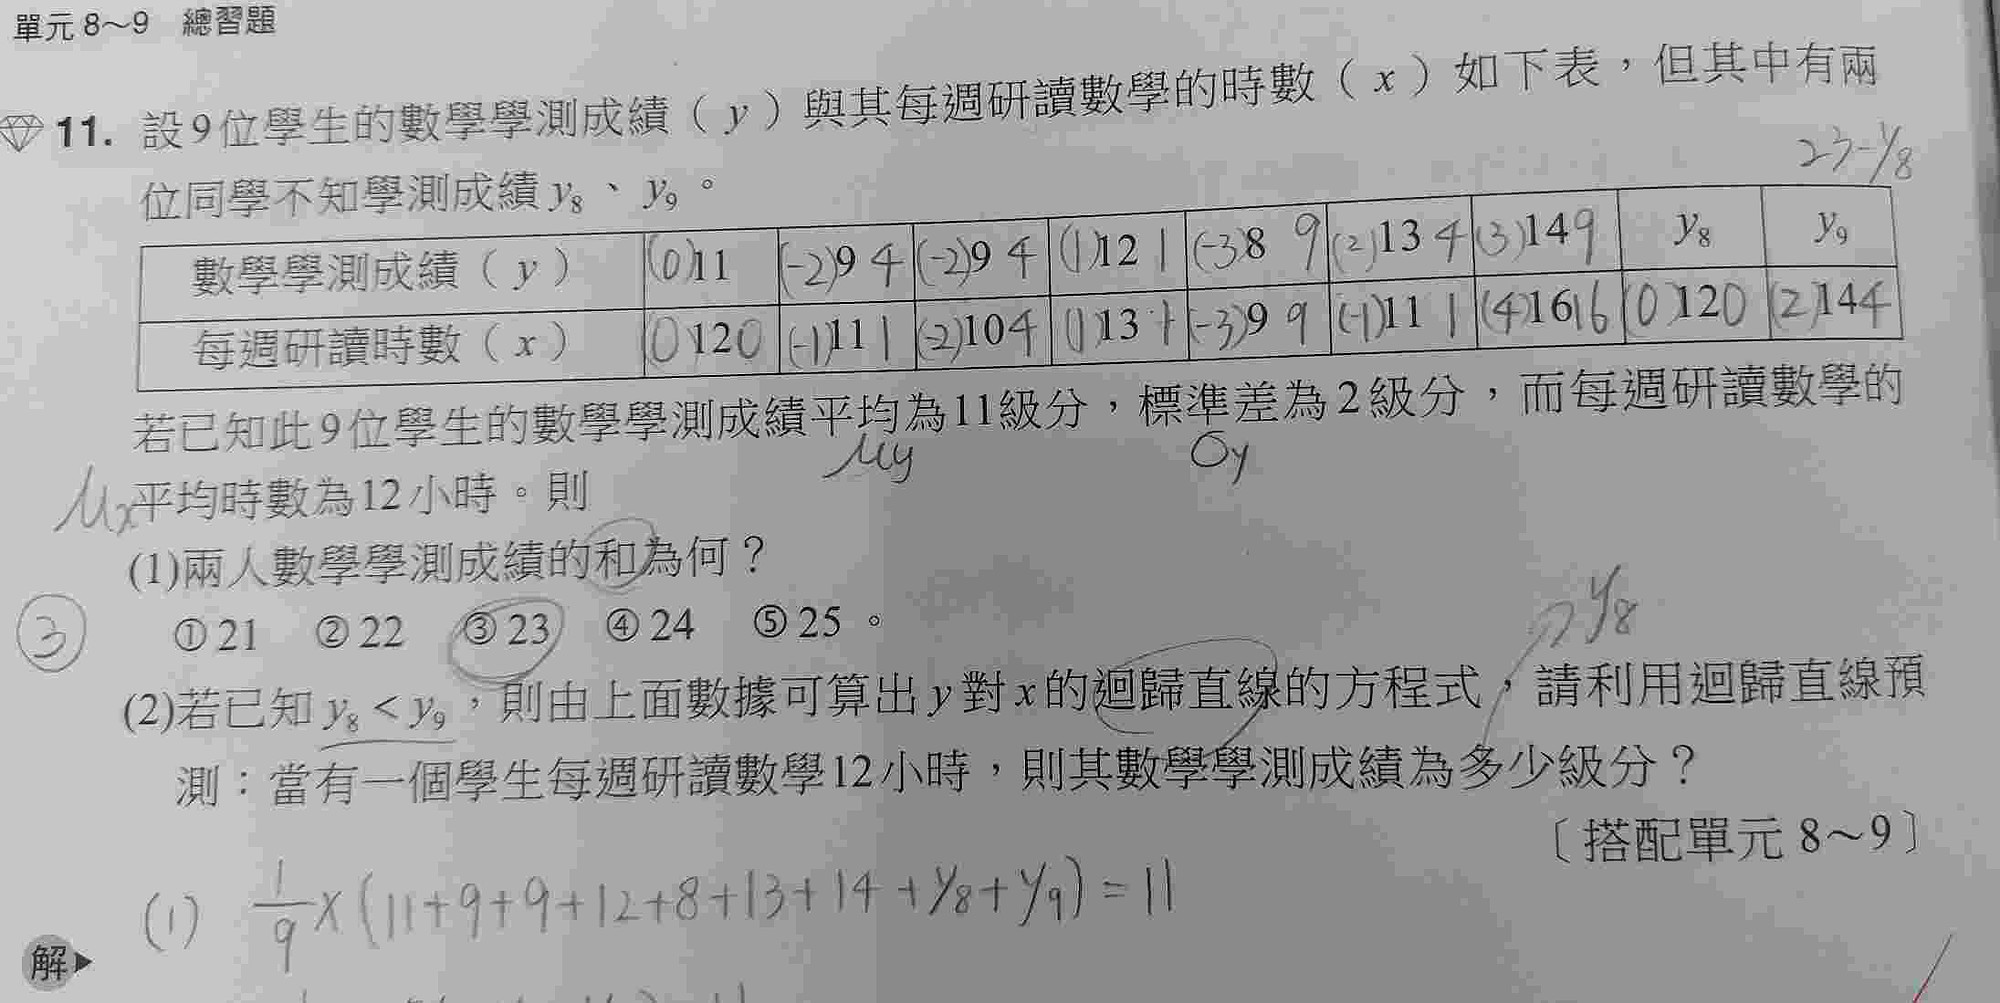 單元 8～9　總習題
11. 設9位學生的數學學測成績（y）與其每週研讀數學的時數（x）如下表，但其中有兩
23-y₈
位同學不知學測成績 y₈、y₉。
數學學測成績（y） (0)11 (-2)9 4 (-2)9 4 (1)12 1 (-3)8 9 (2)13 4 (3)14 9 y₈ y₉
每週研讀時數（x） (0)12 0 (-1)11 1 (-2)10 4 (1)13 1 (-3)9 9 (-1)11 1 (4)16 16 (0)12 0 (2)14 4
若已知此9位學生的數學學測成績平均為11級分，標準差為2級分，而每週研讀數學的
μy σy
μx 平均時數為12小時。則
(1)兩人數學學測成績的和為何？
③ ①21 ②22 ③23 ④24 ⑤25。
y₈
(2)若已知 y₈ < y₉，則由上面數據可算出 y 對 x 的迴歸直線的方程式，請利用迴歸直線預
測：當有一個學生每週研讀數學12小時，則其數學學測成績為多少級分？
〔搭配單元 8～9〕
(1) 1/9 × (11+9+9+12+8+13+14+y₈+y₉) = 11
解▶